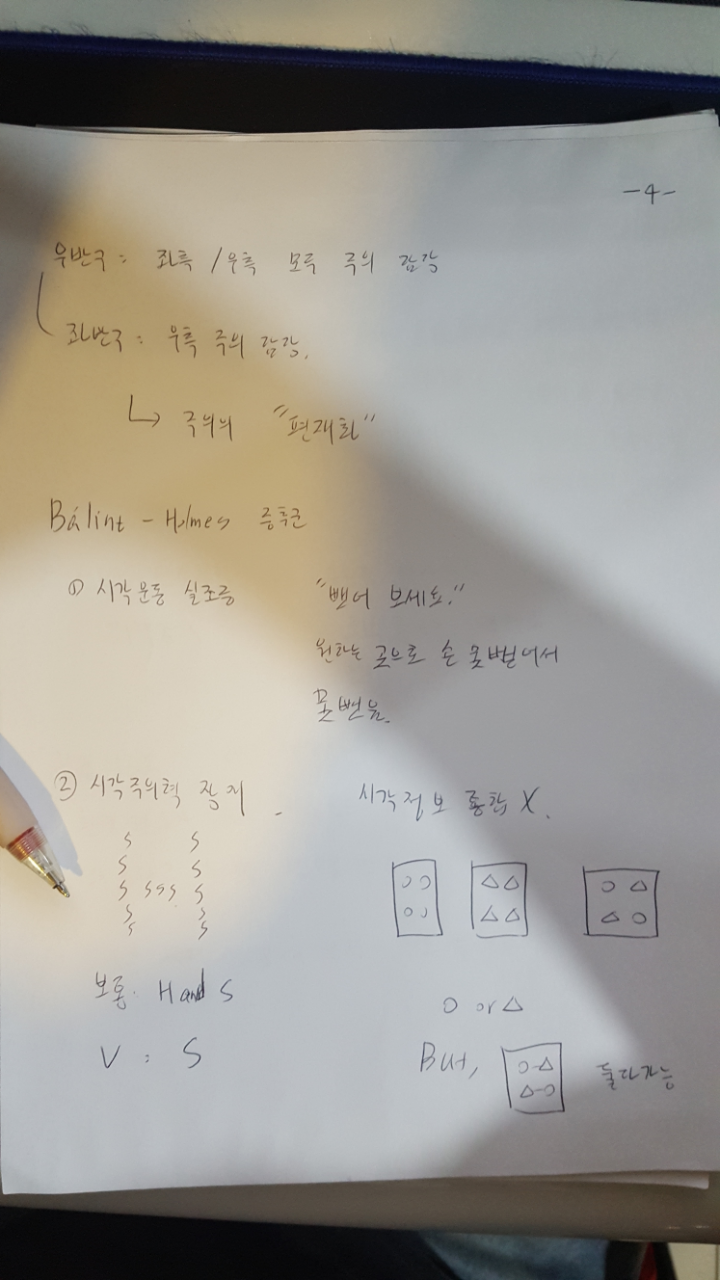 -4-
우반구: 좌측 / 우측 모두 주의 감각
좌반구: 우측 주의 감각.
↳ 주의의 "편재화"
Bálint - Holmes 증후군
① 시각운동 실조증
"뻗어 보세요."
원하는 곳으로 손 못뻗어서
못뻗음.
② 시각주의력 장애
시각정보 통합 X.
S S
S S
S SSS S
S S
S S
○○ △△ ○△
○○ △△ △○
보통: H and S
○ or △
V : S
But, ○-△ 둘다가능
△-○